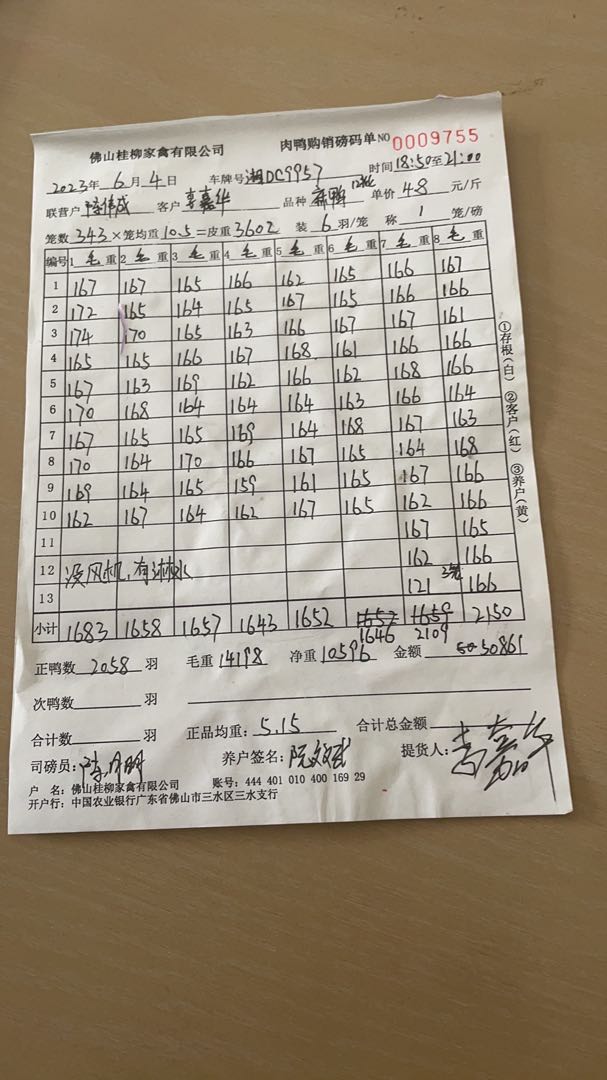 佛山桂柳家禽有限公司 肉鸭购销磅码单 NO 0009755
2023年 6月 4日 车牌号 湘DC9957 时间 18:50至21:00
联营户 伟成 客户 嘉华 品种 麻鸭 单价 4.8 元/斤
笼数 343 × 笼均重 10.5 = 皮重 3602 装 6 羽/笼 称 1 笼/磅
编号 1 毛 重 2 毛 重 3 毛 重 4 毛 重 5 毛 重 6 毛 重 7 毛 重 8 毛 重
1 167 167 165 166 162 165 166 167
2 172 165 164 165 167 165 166 166
3 174 170 165 163 166 167 167 161
4 165 165 166 167 168 161 166 166
5 167 163 169 162 166 162 168 166
6 170 168 164 164 164 163 166 164
7 167 165 165 169 164 168 167 163
8 170 164 170 166 167 165 164 168
9 169 164 165 159 161 165 167 166
10 162 167 164 162 167 165 162 166
11 167 165
12 没风机,有淋水 162 166
13 121 3笼 166
小计 1683 1658 1657 1643 1652 1657 1659 2150
1646 2109
正鸭数 2058 羽 毛重 14198 净重 10596 金额 50861
次鸭数 羽
合计数 羽 正品均重: 5.15 合计总金额
司磅员: 养户签名: 阮文斌 提货人:
户 名: 佛山桂柳家禽有限公司 账号: 444 401 010 400 169 29
开户行: 中国农业银行广东省佛山市三水区三水支行
①存根(白) ②客户(红) ③养户(黄)